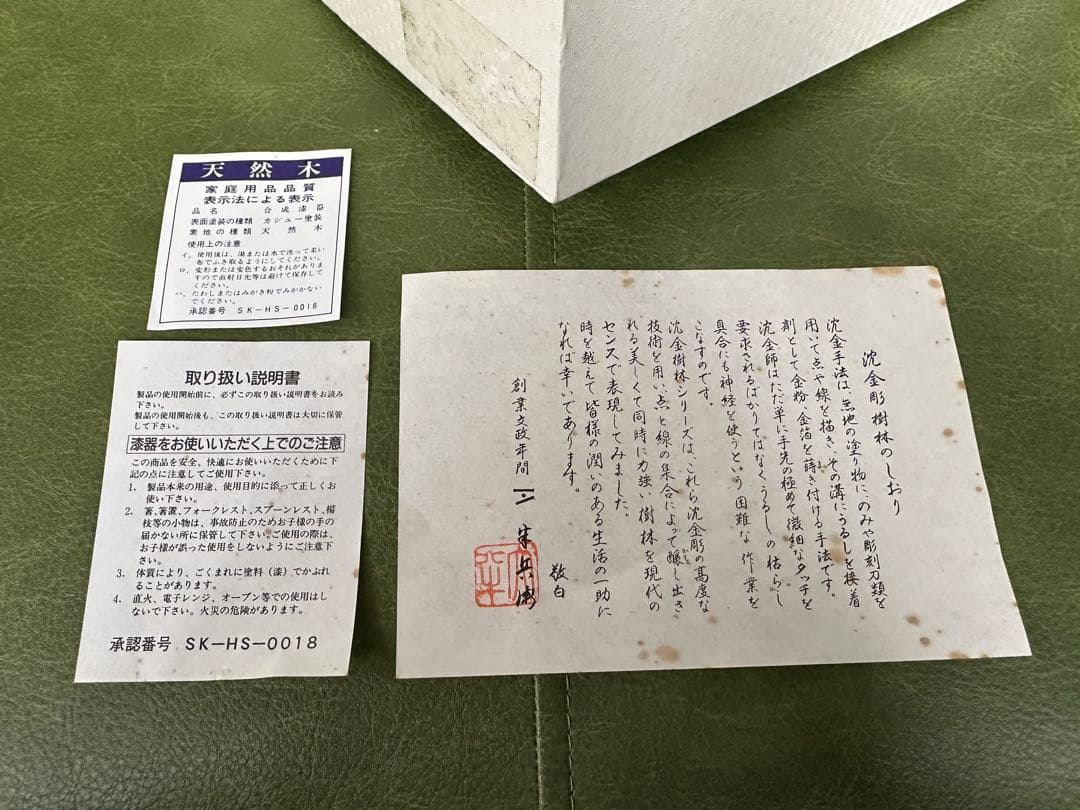 天然木
家庭用品品質
表示法による表示
品名 合成漆器
表面塗装の種類 カシュー塗装
素地の種類 天然木
使用上の注意
イ、使用後は、湯または水で洗って柔い
布でふき取るようにしてください。
ロ、変形または変色するおそれがありま
すので直射日光等は避けて保存して
ください。
ハ、たわしまたはみがき粉でみがかない
でください。
承認番号 SK-HS-0018
取り扱い説明書
製品の使用開始前に、必ずこの取り扱い説明書をお読み
下さい。
製品の使用開始後も、この取り扱い説明書は大切に保管
して下さい。
漆器をお使いいただく上でのご注意
この商品を安全、快適にお使いいただくために下
記の点に注意してご使用下さい。
1. 製品本来の用途、使用目的に添って正しくお
使い下さい。
2. 箸、箸置、フォークレスト、スプーンレスト、楊
枝等の小物は、事故防止のためお子様の手の
届かない所に保管して下さい。ご使用の際は、
お子様が誤った使用をしないようにご注意下
さい。
3. 体質により、ごくまれに塗料（漆）でかぶれ
ることがあります。
4. 直火、電子レンジ、オーブン等での使用はし
ないで下さい。火災の危険があります。
承認番号 SK-HS-0018
沈金彫樹林のしおり
沈金手法は、無地の塗り物にのみや彫刻刀類を
用いて点や線を描き、その溝にうるしを接着
剤として金粉、金箔を蒔き付ける手法です。
沈金師はただ単に手先の極めて微細なタッチを
要求されるばかりではなくうるしの枯らし
具合にも神経を使うという困難な作業を
こなすのです。
沈金樹林シリーズは、これら沈金彫の高度な
技術を用い、点と線の集合によって醸し出さ
れる美しくて同時に力強い樹林を現代の
センスで表現してみました。
時を越えて皆様の潤いのある生活の一助に
なれば幸いであります。
敬白
創業文政年間
兵衛